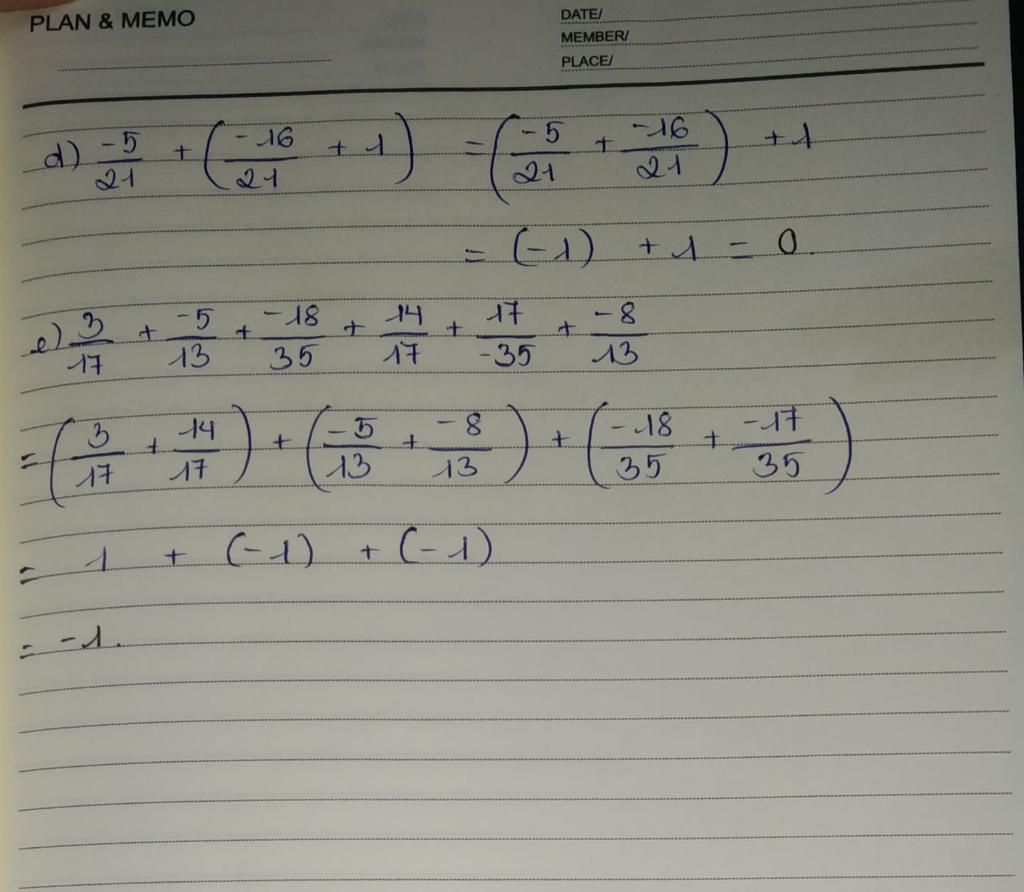 PLAN & MEMO
DATE/
MEMBER/
PLACE/
d) -5/21 + (-16/21 + 1) = (-5/21 + -16/21) + 1
= (-1) + 1 = 0.
e) 3/17 + -5/13 + -18/35 + 14/17 + 17/-35 + -8/13
= (3/17 + 14/17) + (-5/13 + -8/13) + (-18/35 + -17/35)
= 1 + (-1) + (-1)
= -1.